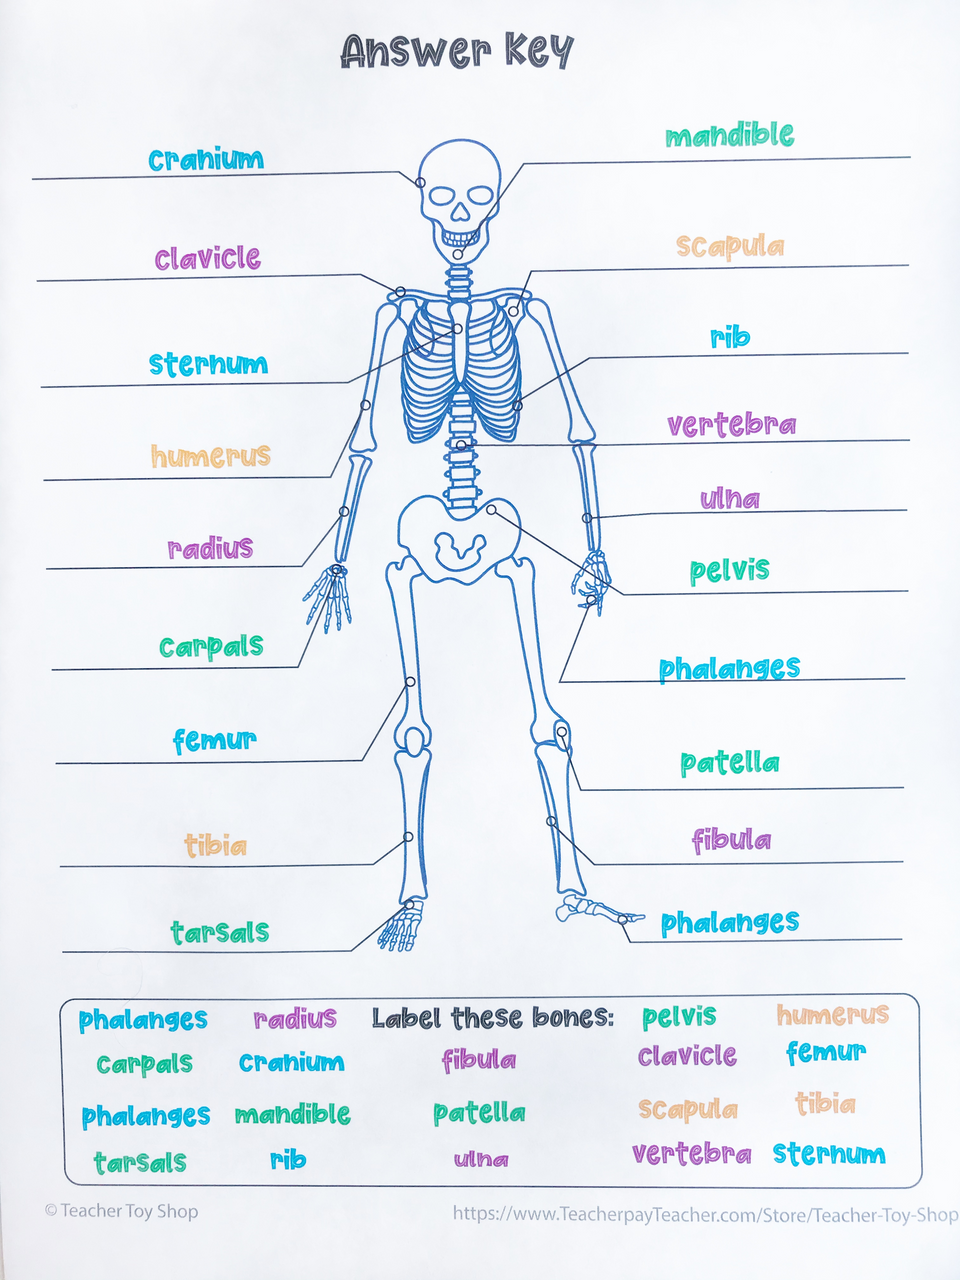 Answer Key
cranium
mandible
clavicle
scapula
sternum
rib
humerus
vertebra
radius
ulna
pelvis
carpals
phalanges
femur
patella
tibia
fibula
tarsals
phalanges
phalanges radius Label these bones: pelvis humerus
carpals cranium fibula clavicle femur
phalanges mandible patella scapula tibia
tarsals rib ulna vertebra sternum
© Teacher Toy Shop https://www.TeacherpayTeacher.com/Store/Teacher-Toy-Shop